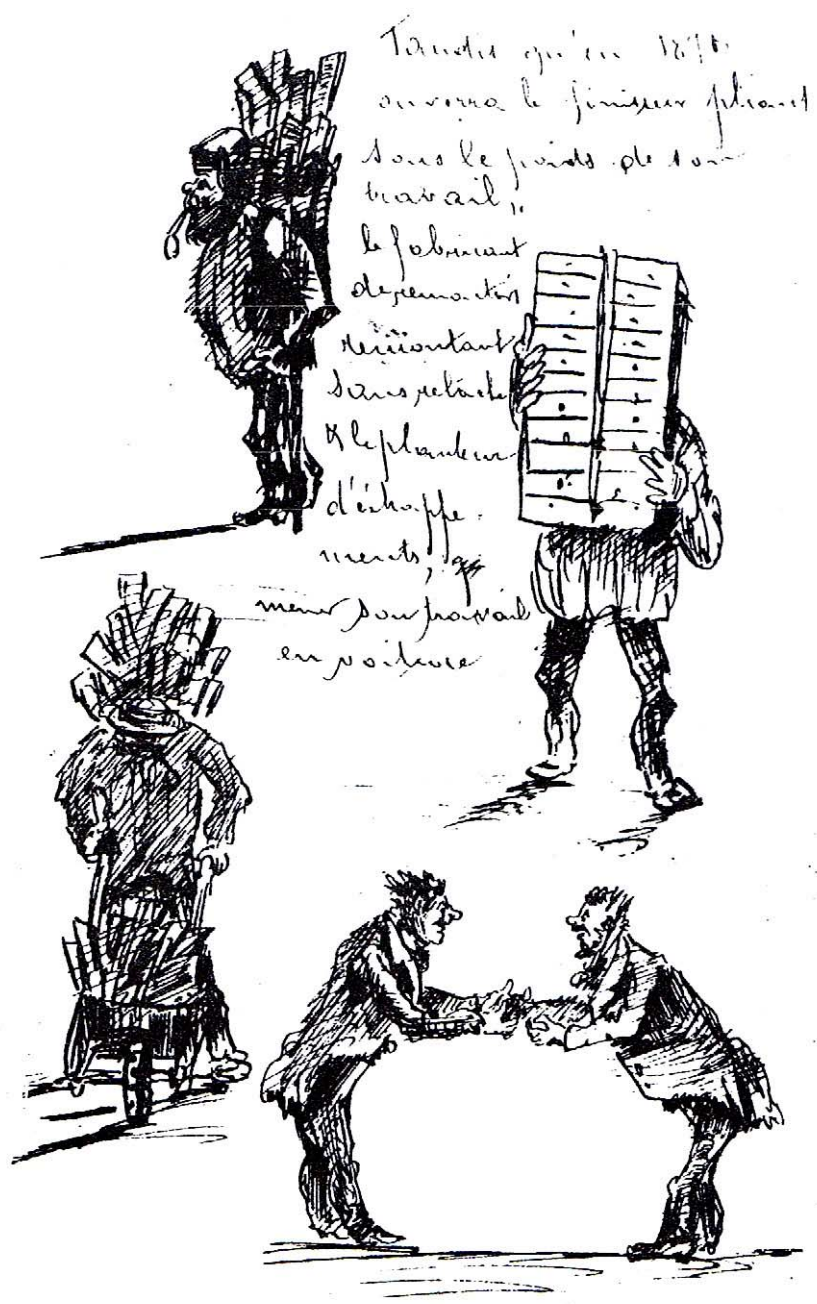 Tandis qu'en 187
on verra le finisseur pliant
sous le poids de son
travail,
le fabricant
de remontoirs
remontant
sans relâche
& le planteur
d'échappe-
ments,
mener son travail
en voiture